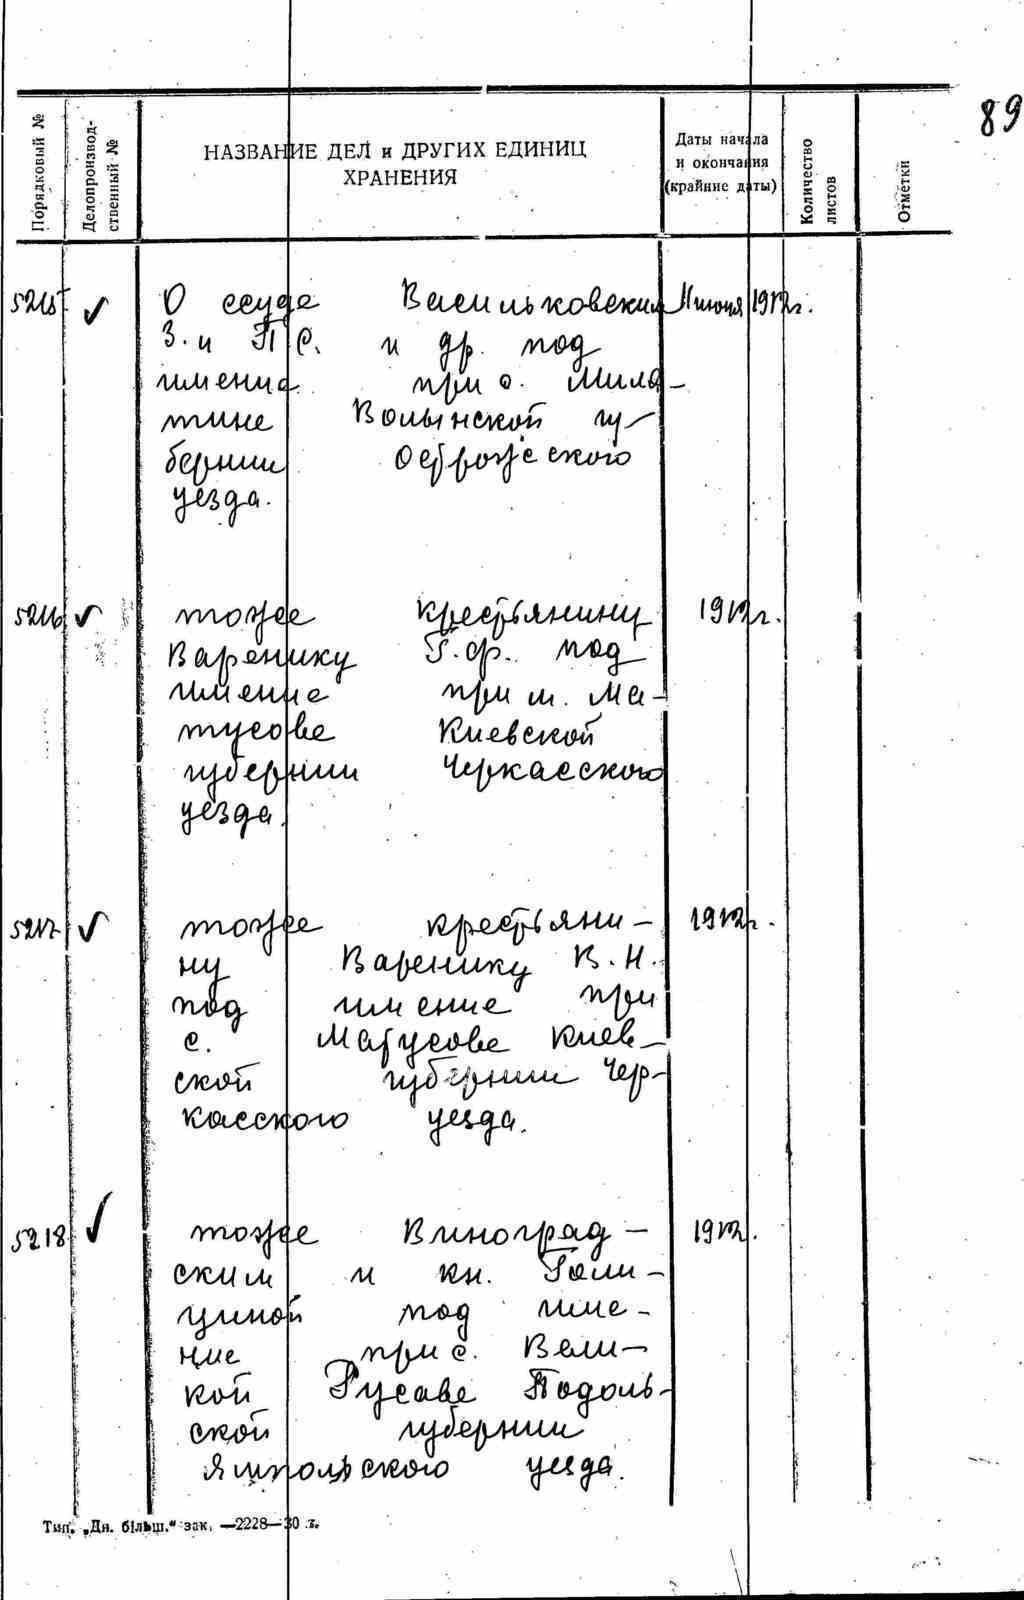 89
Порядковый №
Делопроизвод-
ственный №
НАЗВАНИЕ ДЕЛ и ДРУГИХ ЕДИНИЦ
ХРАНЕНИЯ
Даты начала
и окончания
(крайние даты)
Количество
листов
Отметки
5215 О ссуде Васильковским 11 июня 1912г.
З. и П С. и др. под
имение при с. Миля-
тине Волынской гу-
бернии Острожсского
уезда.
5216 тоже крестьянину 1912г.
Варенику Г.Ф. под
имение при м. Ма-
тусове Киевской
губернии Черкасского
уезда.
5217 тоже крестьяни- 1912г.
ну Варенику В.Н.
под имение при
с. Матусове Киев-
ской губернии Чер-
касского уезда.
5218 тоже Виноград- 1912.
ским и кн. Голи-
циной под име-
ние при с. Вели-
кой Русаве Подоль-
ской губернии
Ямпольского уезда.
Тип. „Дн. більш.“ зак. —2228—30 г.